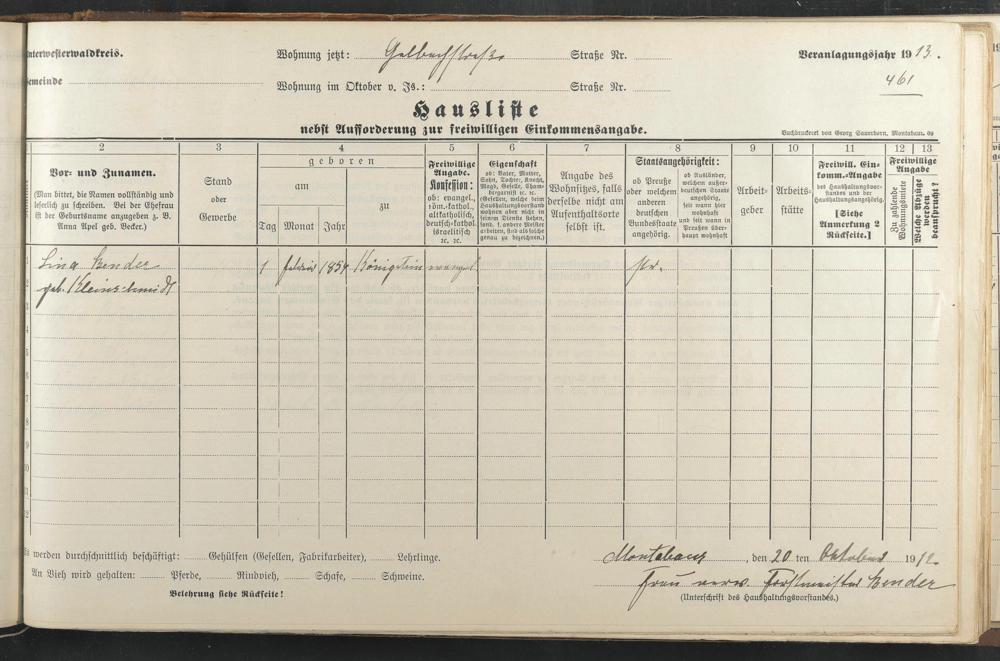 Unterwesterwaldkreis. Wohnung jetzt: Gelbachstraße Straße Nr. Veranlagungsjahr 1913.
Gemeinde Wohnung im Oktober v. Js.: Straße Nr. 461
Hausliste
nebst Aufforderung zur freiwilligen Einkommensangabe.
Buchdruckerei von Georg Sauerborn, Montabaur. 09
2 3 4 5 6 7 8 9 10 11 12 13
Vor- und Zunamen.
(Man bittet, die Namen vollständig und
leserlich zu schreiben. Bei der Ehefrau
ist der Geburtsname anzugeben z. B.
Anna Apel geb. Becker.)
Stand
oder
Gewerbe
geboren
am
zu
Tag Monat Jahr
Freiwillige
Angabe.
Konfession:
ob: evangel.,
röm.-kathol.,
altkatholisch,
deutsch-kathol.
israelitisch
ic. ic.
Eigenschaft
ob: Vater, Mutter,
Sohn, Tochter, Knecht,
Magd, Geselle, Cham-
bergarnist ic. ic.
(Gesellen, welche beim
Haushaltungsvorstand
wohnen aber nicht in
seinem Dienste stehen,
sond. f. andere Meister
arbeiten, sind als solche
genau zu bezeichnen.)
Angabe des
Wohnsitzes, falls
derselbe nicht am
Aufenthaltsorte
selbst ist.
Staatsangehörigkeit:
ob Preuße
oder welchem
anderen
deutschen
Bundesstaate
angehörig.
ob Ausländer,
welchem außer-
deutschen Staate
angehörig,
seit wann hier
wohnhaft
und seit wann in
Preußen über-
haupt wohnhaft
Arbeit-
geber
Arbeits-
stätte
Freiwill. Ein-
komm.-Angabe
des Haushaltungsvor-
standes und der
Haushaltungsangehörig.
[Siehe
Anmerkung 2
Rückseite.]
Freiwillige
Angabe
Zu zahlende
Wohnungsmiete
Welche Abzüge
werden
beansprucht?
Lina Bender 1 Februar 1854 Königstein evangel. Pr.
geb. Kleinschmidt
Es werden durchschnittlich beschäftigt: Gehülfen (Gesellen, Fabrikarbeiter), Lehrlinge.
An Vieh wird gehalten: Pferde, Rindvieh, Schafe, Schweine.
Belehrung siehe Rückseite!
Montabaur, den 20 ten Oktober 1912
Frau verw. Forstmeister Bender
(Unterschrift des Haushaltungsvorstandes.)